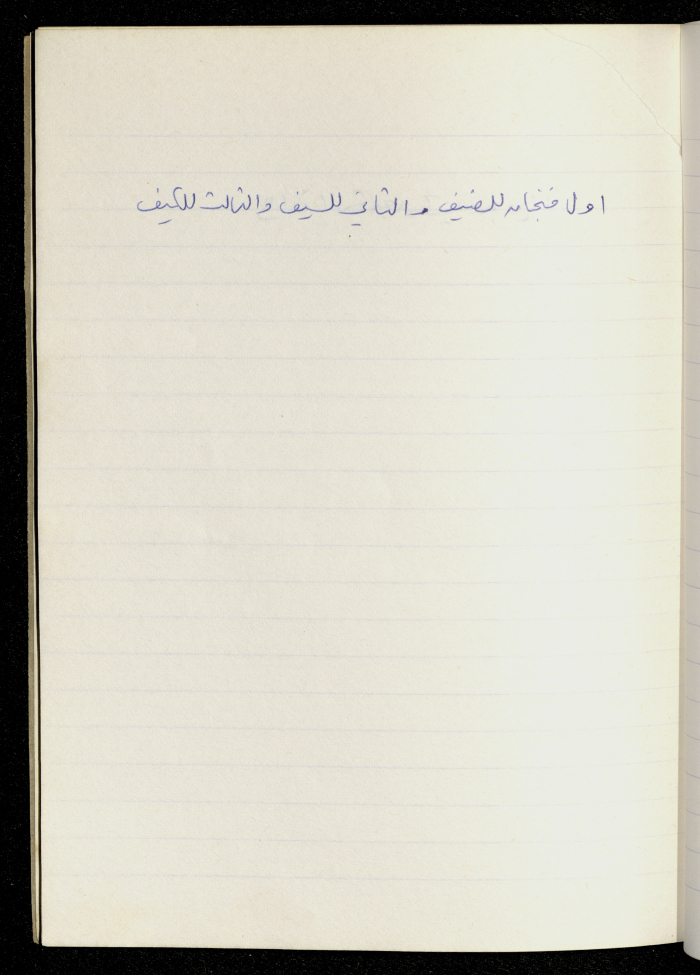 اول فنجان للضيف والثاني للسيف والثالث للكيف